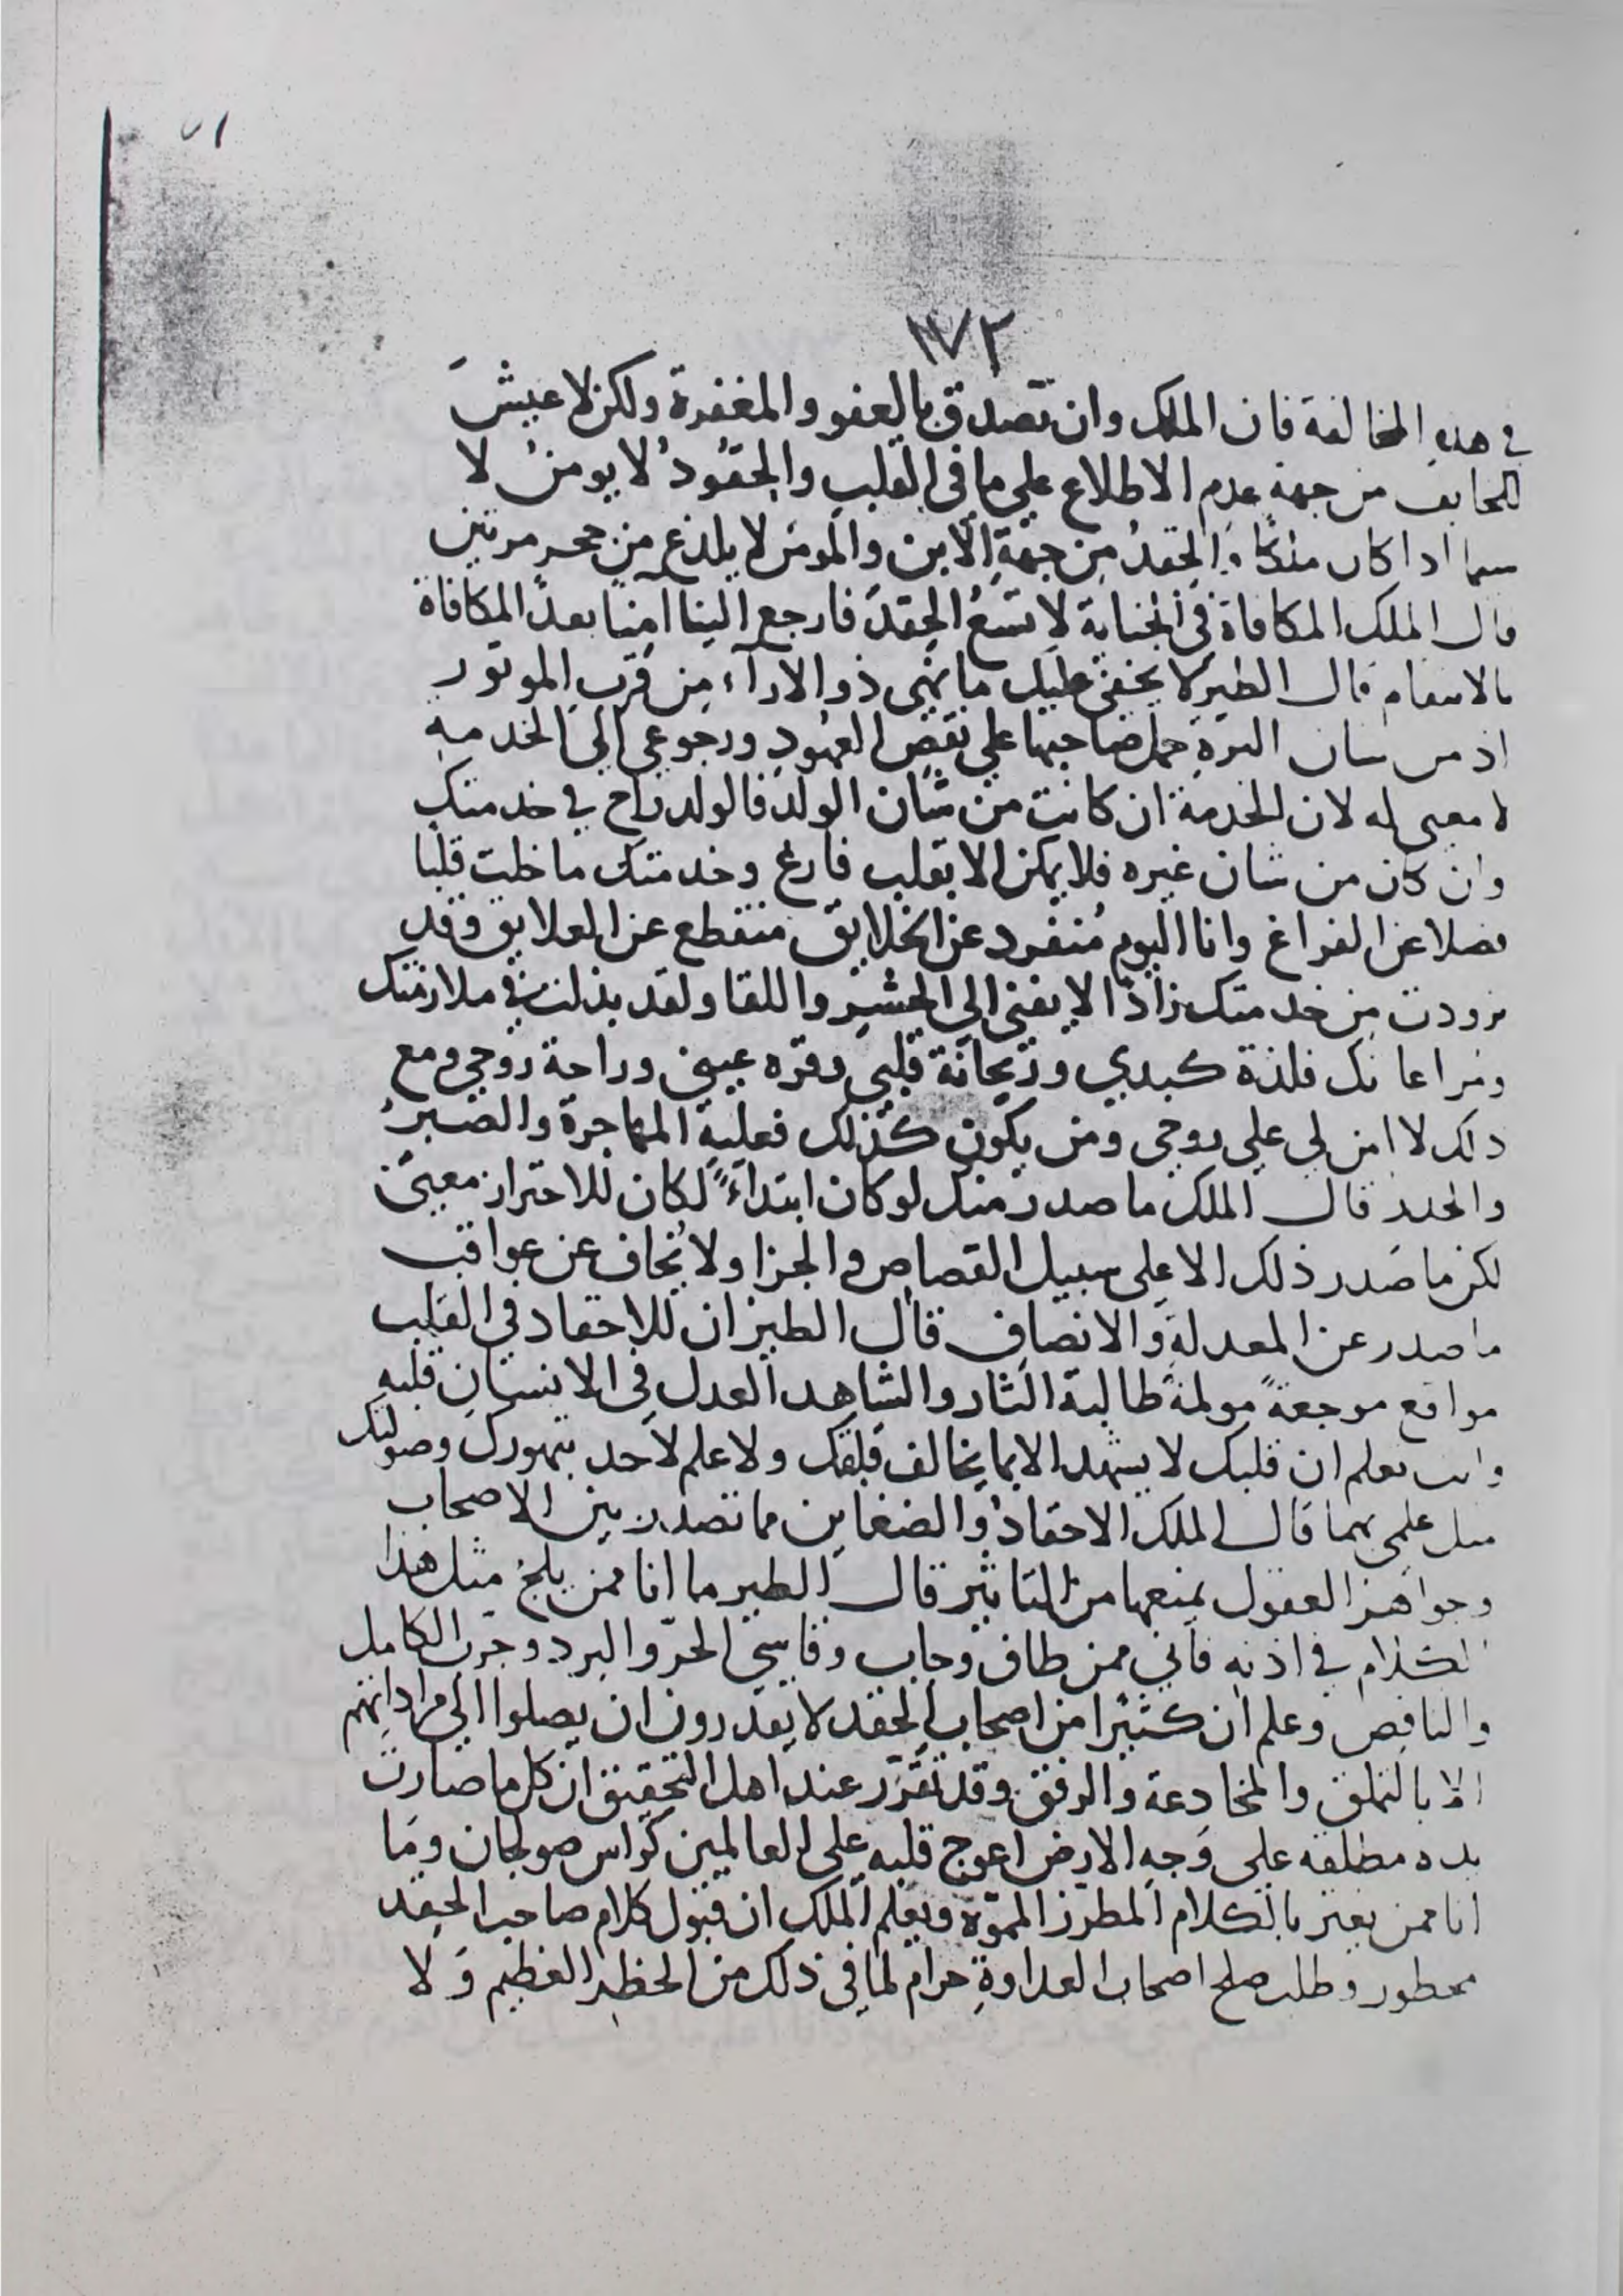 ١٧٢
في هذه المخالفة فان الملك وان تصدق بالعفو والمغفرة ولكن لا عيش
للخايف من جهة عدم الاطلاع على ما في القلب والحقود لا يومن لا
سيما اذا كان ملكا والحقد من جهة الابن والمومن لا يلدغ من جحر مرتين
قال الملك المكافاة في الجناية لا تسع الحقد فارجع الينا آمنا بعد المكافاة
بالانتقام قال الطير لا يخفى عليك ما نهى ذو الاراء من قرب الموتور
اذ من شان الترة حمل صاحبها على نقض العهود ورجوعي الى الخدمة
لا معنى له لان الخدمة ان كانت من شان الولد فالولد راح في خدمتك
وان كان من شان غيره فلا يمكن الا بقلب فارغ وخدمتك ما خلت قلبا
فضلا عن الفراغ وانا اليوم منفرد عن الخلايق منقطع عن العلايق وقد
تزودت من خدمتك زادا لا يفنى الى الحشر واللقا ولقد بذلت في ملازمتك
ومراعاتك فلذة كبدي وريحانة قلبي وقره عيني وراحة روحي ومع
ذلك لا امن لي على روحي ومن يكون كذلك فعليه المهاجرة والصبر
والحذر قال الملك ما صدر منك لو كان ابتداء لكان للاحتراز معنى
لكن ما صدر ذلك الا على سبيل القصاص والجزا ولا يخاف عن عواقب
ما صدر عن المعدلة والانصاف قال الطير ان للاحقاد في القلب
مواقع موجعة مولمة طالبة الثار والشاهد العدل في الانسان قلبه
وانت تعلم ان قلبك لا يشهد الا بما يخالف قلقك ولا علم لاحد بتهورك وصولتك
مثل علمي بهما قال الملك الاحقاد والضغاين مما تصدر بين الاصحاب
وجواهر العقول يمنعها من التاثير قال الطير ما انا ممن يلج مثل هذا
الكلام في اذنه فاني ممن طاف وجاب وقاسي الحر والبرد وجرب الكامل
والناقص وعلم ان كثيرا من اصحاب الحقد لا يقدرون ان يصلوا الي مراداتهم
الا بالتملق والمخادعة والرفق وقد تقرر عند اهل التحقيق ان كل ما صارت
يده مطلقة على وجه الارض اعوج قلبه على العالمين كراس صولجان وما
انا ممن يغتر بالكلام المطرز المموه ويعلم الملك ان قبول كلام صاحب الحقد
محظور وطلب صلح اصحاب العداوة حرام لما في ذلك من الخطر العظيم ولا